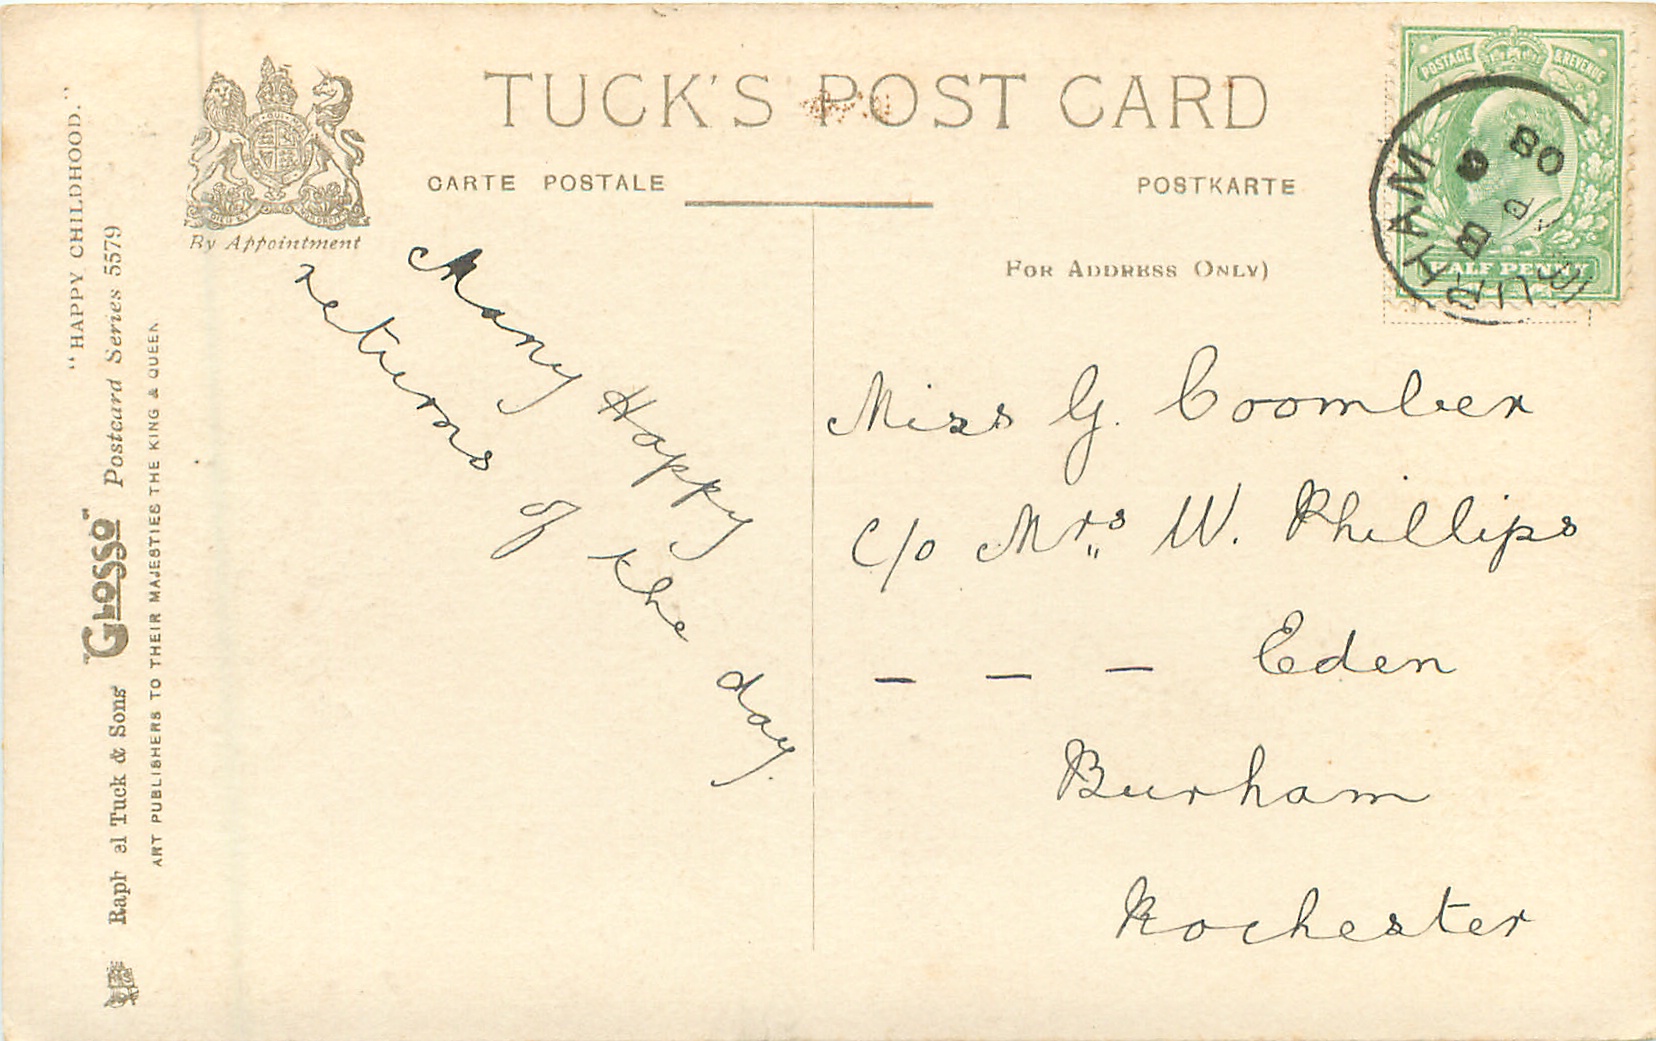 TUCK'S POST CARD
CARTE POSTALE
POSTKARTE
By Appointment
FOR ADDRESS ONLY)
POSTAGE & REVENUE
HALF PENNY
BURHAM
B
AP
9
08
"HAPPY CHILDHOOD."
Raph al Tuck & Sons' "GLOSSO" Postcard Series 5579
ART PUBLISHERS TO THEIR MAJESTIES THE KING & QUEEN
Many Happy
returns of the day.
Miss G. Coomber
C/o Mrs W. Phillips
— — — Eden
Burham
Rochester